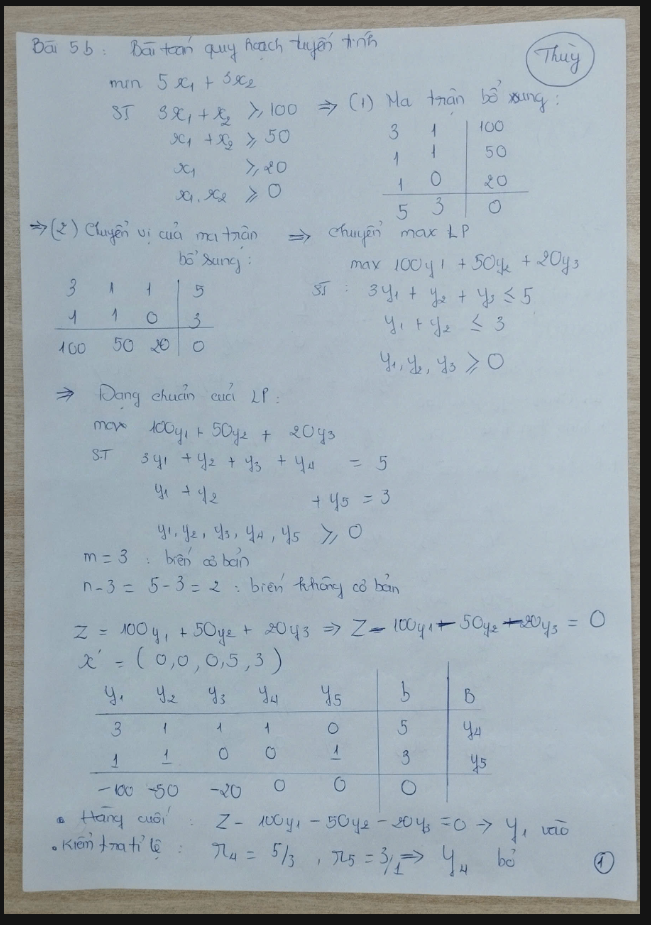 Bài 5b : Bài toán quy hoạch tuyến tính
Thuỳ
min 5x₁ + 3x₂
ST 3x₁ + x₂ ≥ 100 ⇒ (1) Ma trận bổ sung :
x₁ + x₂ ≥ 50
x₁ ≥ 20
x₁, x₂ ≥ 0
3 1 | 100
1 1 | 50
1 0 | 20
5 3 | 0
⇒ (2) Chuyển vị của ma trận bổ sung :
3 1 1 | 5
1 1 0 | 3
100 50 20 | 0
⇒ Chuyển max LP
max 100y₁ + 50y₂ + 20y₃
ST : 3y₁ + y₂ + y₃ ≤ 5
y₁ + y₂ ≤ 3
y₁, y₂, y₃ ≥ 0
⇒ Dạng chuẩn của LP :
max 100y₁ + 50y₂ + 20y₃
ST 3y₁ + y₂ + y₃ + y₄ = 5
y₁ + y₂ + y₅ = 3
y₁, y₂, y₃, y₄, y₅ ≥ 0
m = 3 : biến cơ bản
n - 3 = 5 - 3 = 2 : biến không cơ bản
Z = 100y₁ + 50y₂ + 20y₃ ⇒ Z - 100y₁ - 50y₂ - 20y₃ = 0
x' = ( 0, 0, 0, 5, 3 )
y₁ y₂ y₃ y₄ y₅ | b | B
3 1 1 1 0 | 5 | y₄
1 1 0 0 1 | 3 | y₅
-100 -50 -20 0 0 | 0
• Hàng cuối : Z - 100y₁ - 50y₂ - 20y₃ = 0 → y₁ vào
• Kiểm tra tỉ lệ : r₄ = 5/3 , r₅ = 3/1 ⇒ y₄ bỏ
①